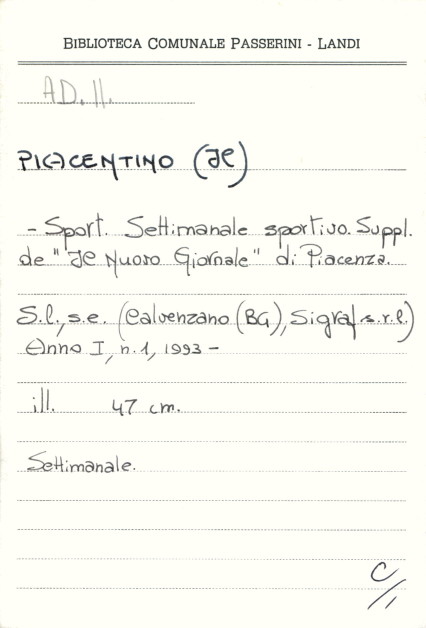 BIBLIOTECA COMUNALE PASSERINI - LANDI
AD. II.
PIACENTINO (Il)
- Sport. Settimanale sportivo. Suppl.
de "Il Nuovo Giornale" di Piacenza.
S.l., s.e. (Calvenzano (BG), Sigraf s.r.l.)
Anno I, n. 1, 1993 -
ill. 47 cm.
Settimanale.
C/1